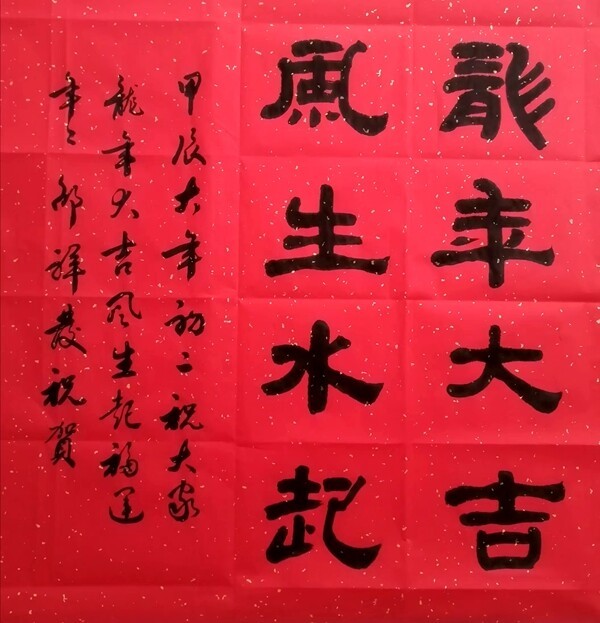 龍年大吉
風生水起
甲辰大年初二祝大家
龍年大吉风生起福運
年〻邵祥發祝賀